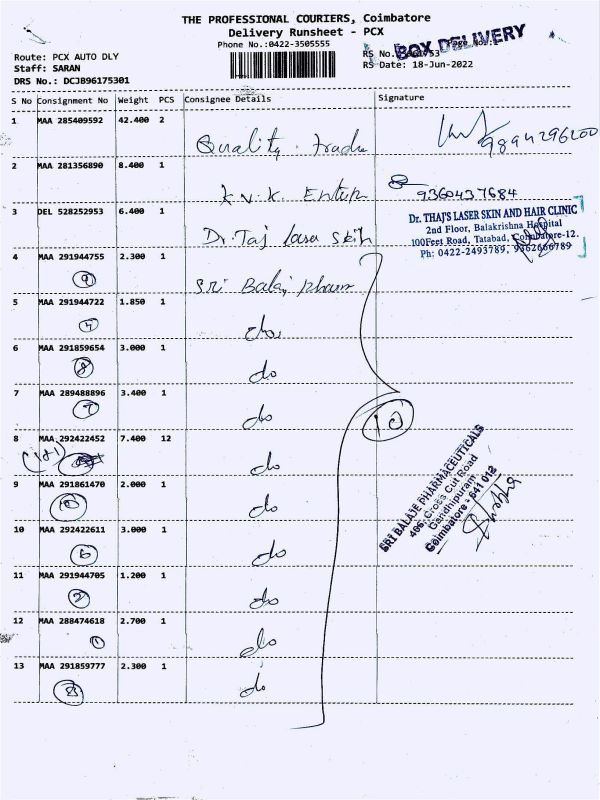 THE PROFESSIONAL COURIERS, Coimbatore
Delivery Runsheet - PCX
Phone No.:0422-3505555
BOX DELIVERY
Route: PCX AUTO DLY
RS No.
Staff: SARAN
RS Date: 18-Jun-2022
DRS No.: DCJB96175301
S No Consignment No Weight PCS Consignee Details Signature
1 MAA 285409592 42.400 2 Quality trade 9894296200
2 MAA 281356890 8.400 1 K.V.K. Enterp 9360437684
3 DEL 528252953 6.400 1 Dr. Taj laser skin
Dr. THAJ'S LASER SKIN AND HAIR CLINIC
2nd Floor, Balakrishna Hospital
100Feet Road, Tatabad, Coimbatore-12.
Ph: 0422-2493789, 9362666789
4 MAA 291944755 2.300 1 Sri Balaj pharm
9
5 MAA 291944722 1.850 1 do
6 MAA 291859654 3.000 1 do
8
7 MAA 289488896 3.400 1 do
7
10
8 MAA 292422452 7.400 12 do
9 MAA 291861470 2.000 1 do
10
SRI BALAJE PHARMACEUTICALS
406, Cross Cut Road
Gandhipuram,
Coimbatore - 641 012
10 MAA 292422611 3.000 1 do
6
11 MAA 291944705 1.200 1 do
2
12 MAA 288474618 2.700 1 do
1
13 MAA 291859777 2.300 1 do